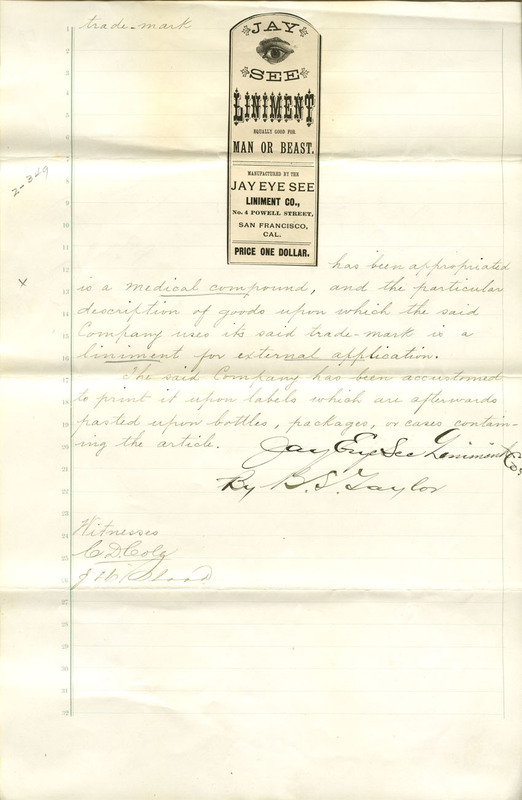 trade-mark
JAY
SEE
LINIMENT
EQUALLY GOOD FOR
MAN OR BEAST.
MANUFACTURED BY THE
JAY EYE SEE
LINIMENT CO.,
No. 4 POWELL STREET,
SAN FRANCISCO,
CAL.
PRICE ONE DOLLAR.
2-349
x
has been appropriated
is a medical compound, and the particular
description of goods upon which the said
Company uses its said trade-mark is a
liniment for external application.
The said Company has been accustomed
to print it upon labels which are afterwards
pasted upon bottles, packages, or cases contain-
ing the article.
Jay Eye See Liniment Co.
By B.S. Taylor
Witnesses
C.D. Cole
1
2
3
4
5
6
7
8
9
10
11
12
13
14
15
16
17
18
19
20
21
22
23
24
25
26
27
28
29
30
31
32